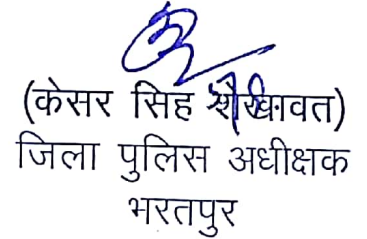 (केसर सिंह शेखावत)
जिला पुलिस अधीक्षक
भरतपुर